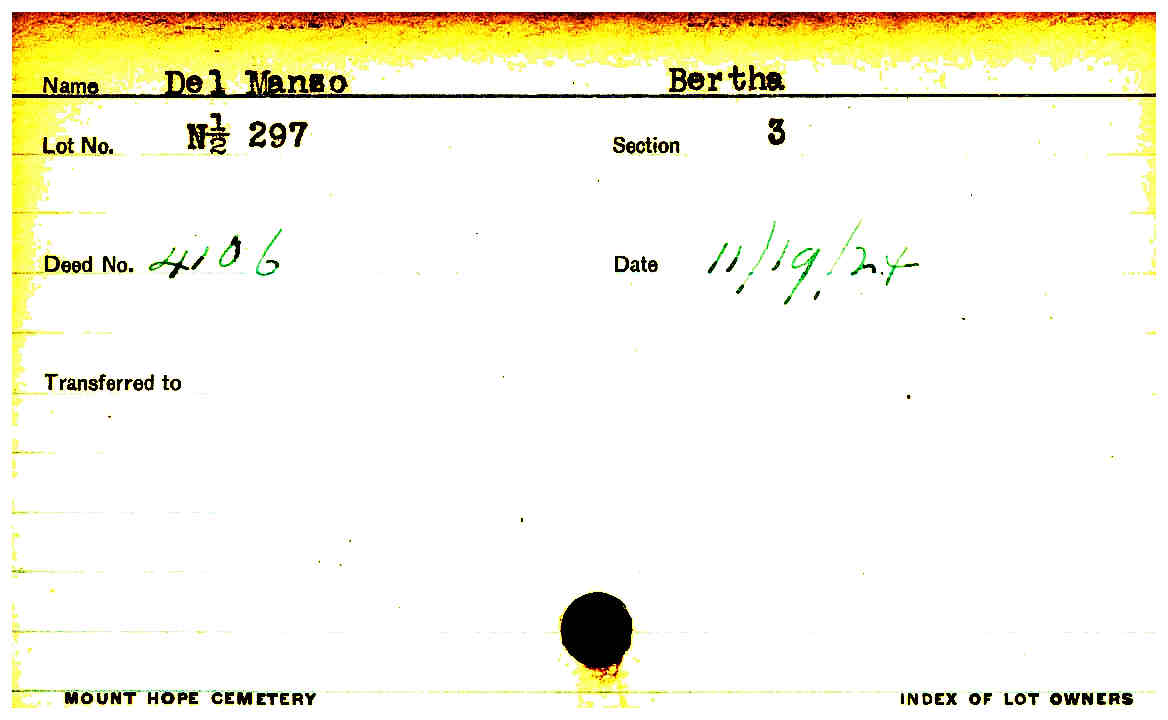 Name Del Manzo Bertha
Lot No. N½ 297 Section 3
Deed No. 4106 Date 11/19/24
Transferred to
MOUNT HOPE CEMETERY INDEX OF LOT OWNERS